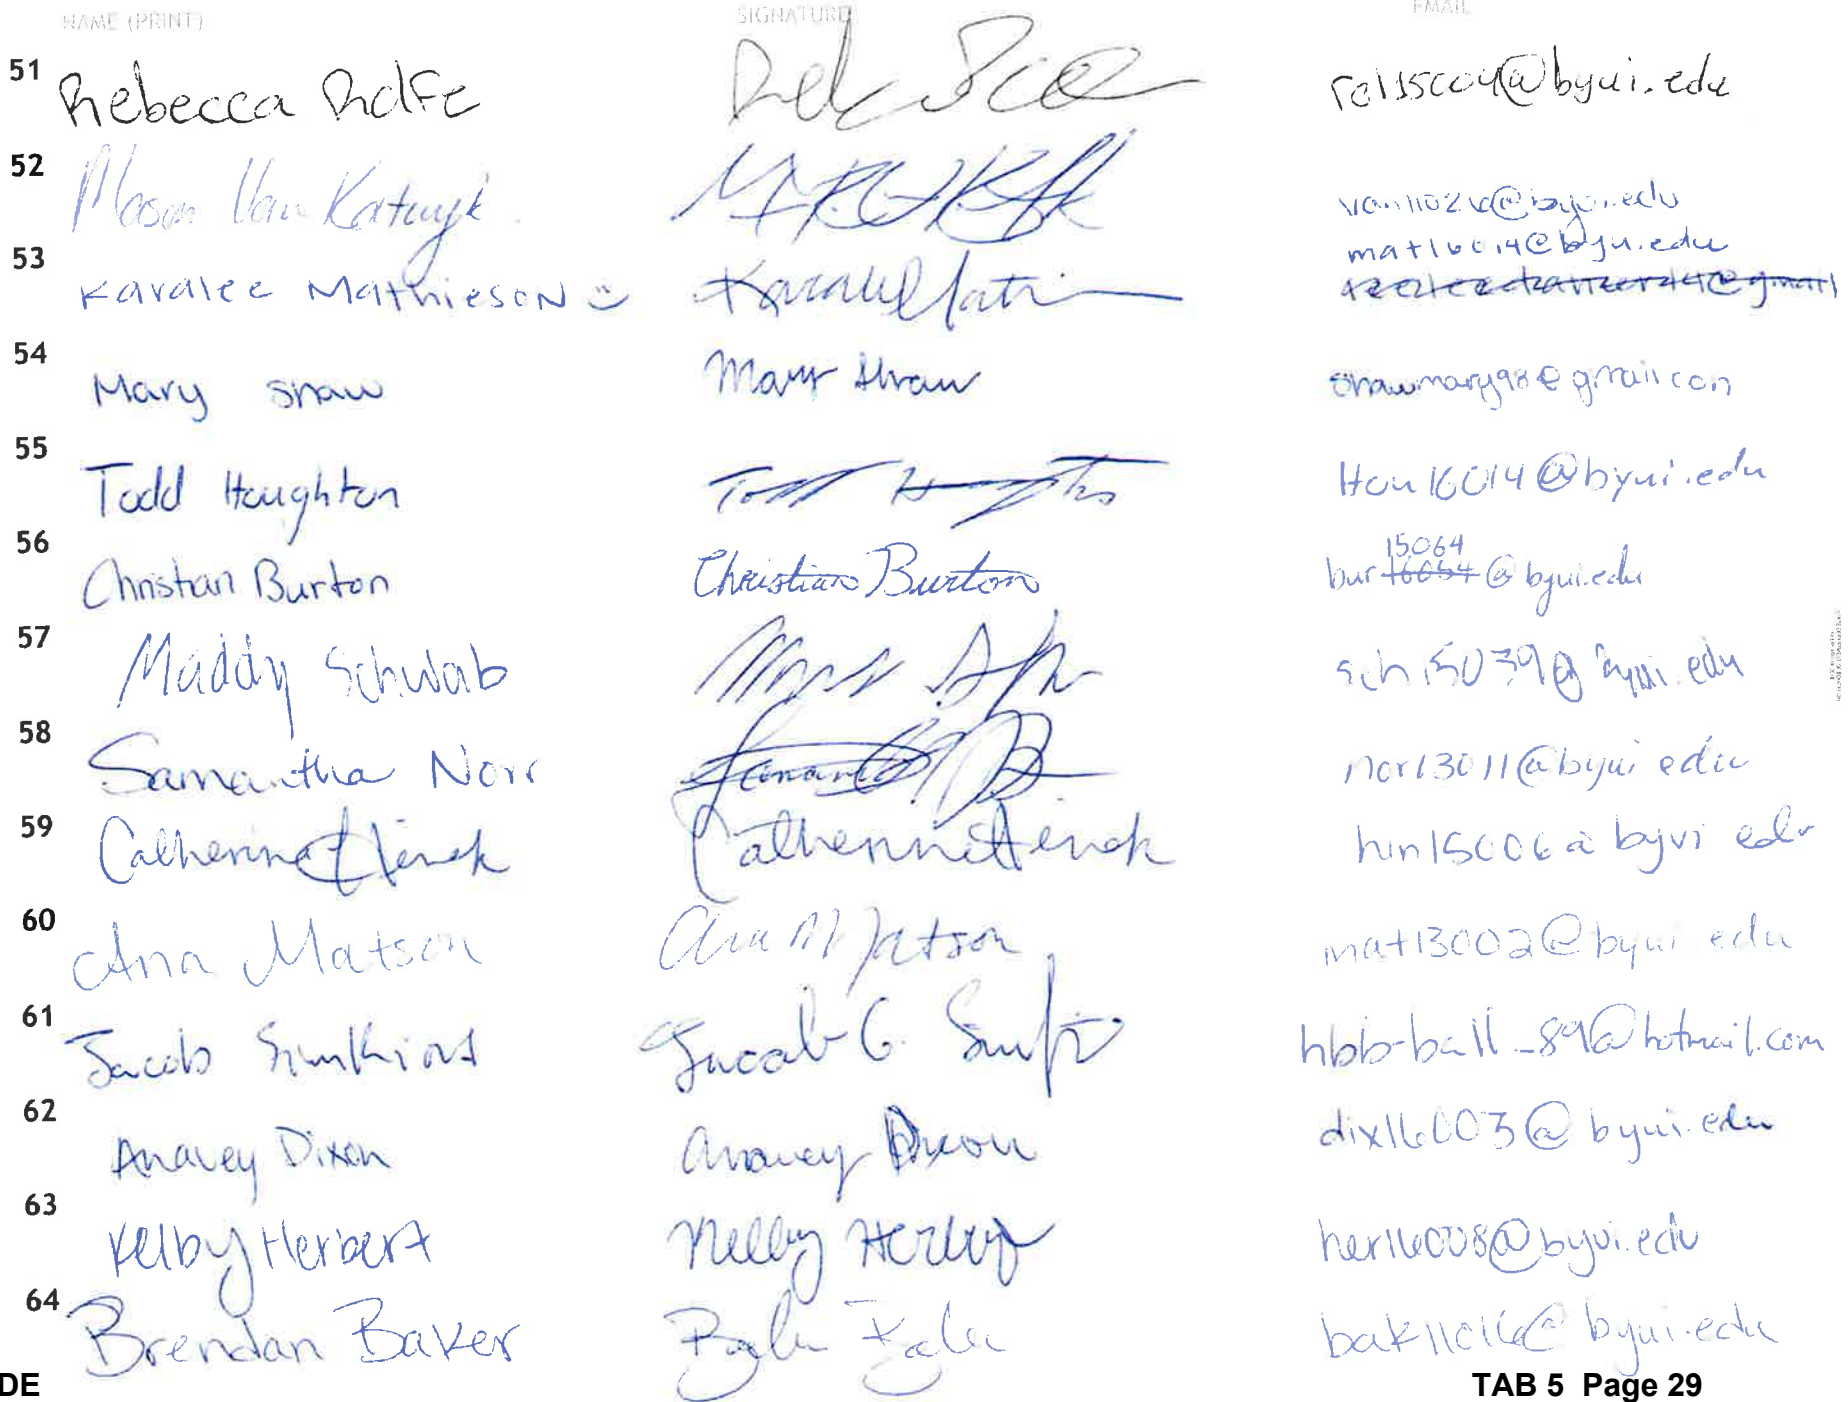 NAME (PRINT) SIGNATURE EMAIL
51 Rebecca Rolfe
52 Mason Van Katwyk
mat16014@byui.edu
53 Karalee Mathieson Karalee @gmail
54 Mary Shaw Mary Shaw shawmary98@gmail.com
55 Todd Houghton Todd Hou16014@byui.edu
56 Christian Burton Christian Burton bur 15064 16054 @byui.edu
57 Maddy Schwab sch15039@byui.edu
58 Samantha Norr nor13011@byui.edu
59 Catherine Hinck Catherine Hinck hin15006@byui.edu
60 Ana Matson Ana Matson mat13002@byui.edu
61 Jacob Simkins Jacob G. hbb-ball_89@hotmail.com
62 Anavey Dixon Anavey Dixon dix16003@byui.edu
63 Kelby Herbert Kelby her16008@byui.edu
64 Brendan Baker bak11016@byui.edu
DE TAB 5 Page 29